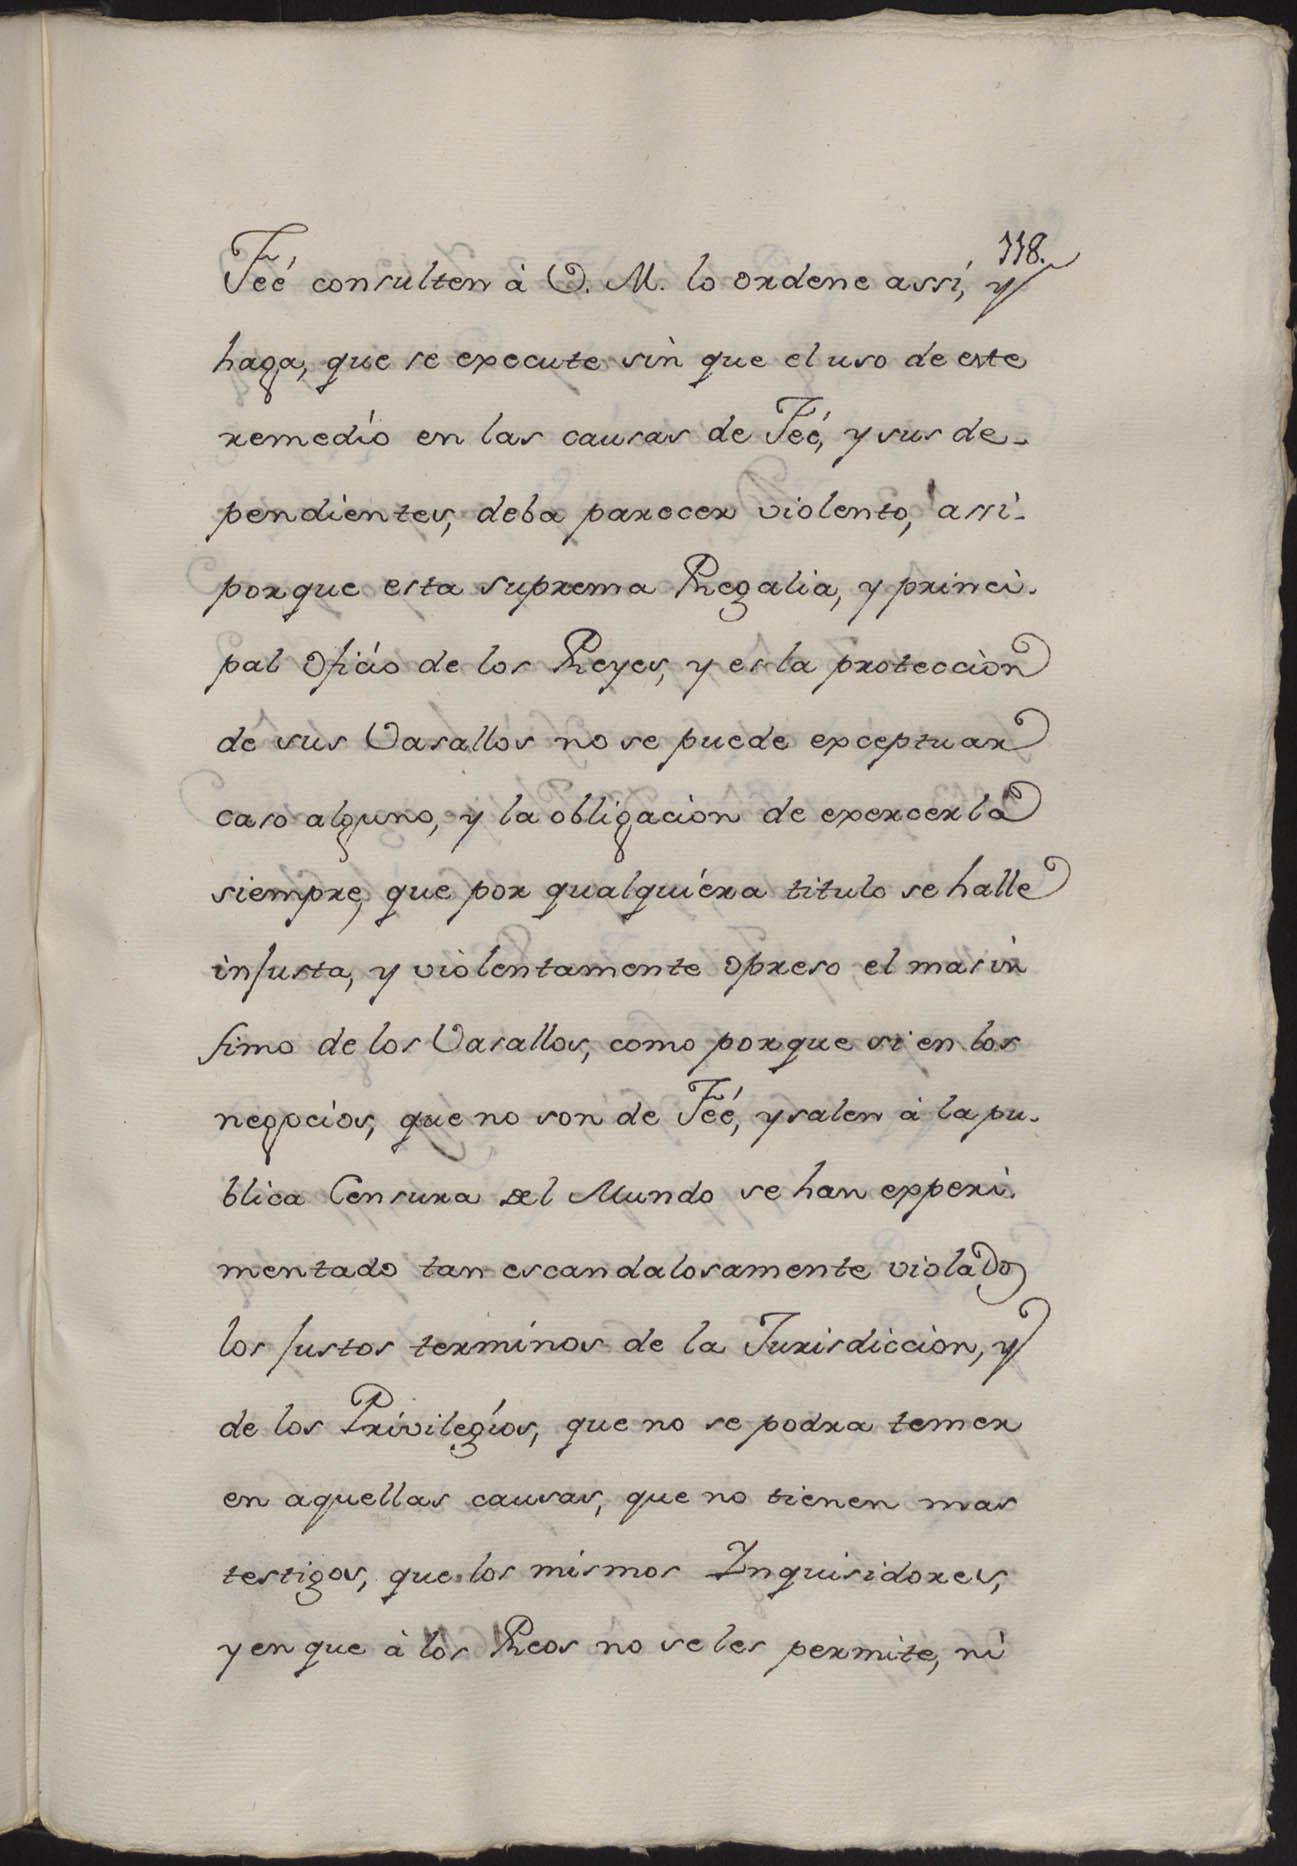 118.
Feé consulten à V. M. lo ordene assi, y
haga, que se execute sin que el uso de este
remedio en las causas de Feé, y sus de-
pendientes, deba parecer violento, assi-
porque esta suprema Regalia, y princi-
pal oficio de los Reyes, y es la proteccion
de sus Vasallos no se puede exceptuar
caso alguno, y la obligacion de exercerla
siempre, que por qualquiera titulo se halle
injusta, y violentamente opreso el mas in
fimo de los Vasallos, como porque si en los
negocios, que no son de Feé, y salen à la pu-
blica Censura del Mundo se han experi-
mentado tan escandalosamente violados
los justos terminos de la Jurisdiccion, y
de los Privilegios, que no se podra temer
en aquellas causas, que no tienen mas
testigos, que los mismos Inquisidores,
y en que à los Reos no se les permite, ni